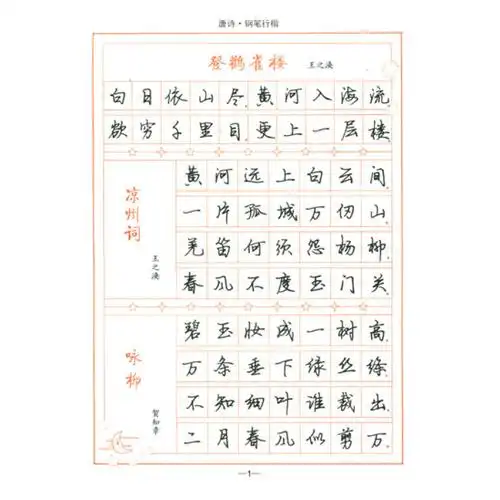 唐诗·钢笔行楷
登鹳雀楼 王之涣
白日依山尽.黄河入海流.
欲穷千里目.更上一层楼
凉州词
王之涣
黄河远上白云间
一片孤城万仞山.
羌笛何须怨杨柳.
春风不度玉门关.
咏柳
贺知章
碧玉妆成一树高.
万条垂下绿丝绦.
不知细叶谁裁出.
二月春风似剪万.
—1—